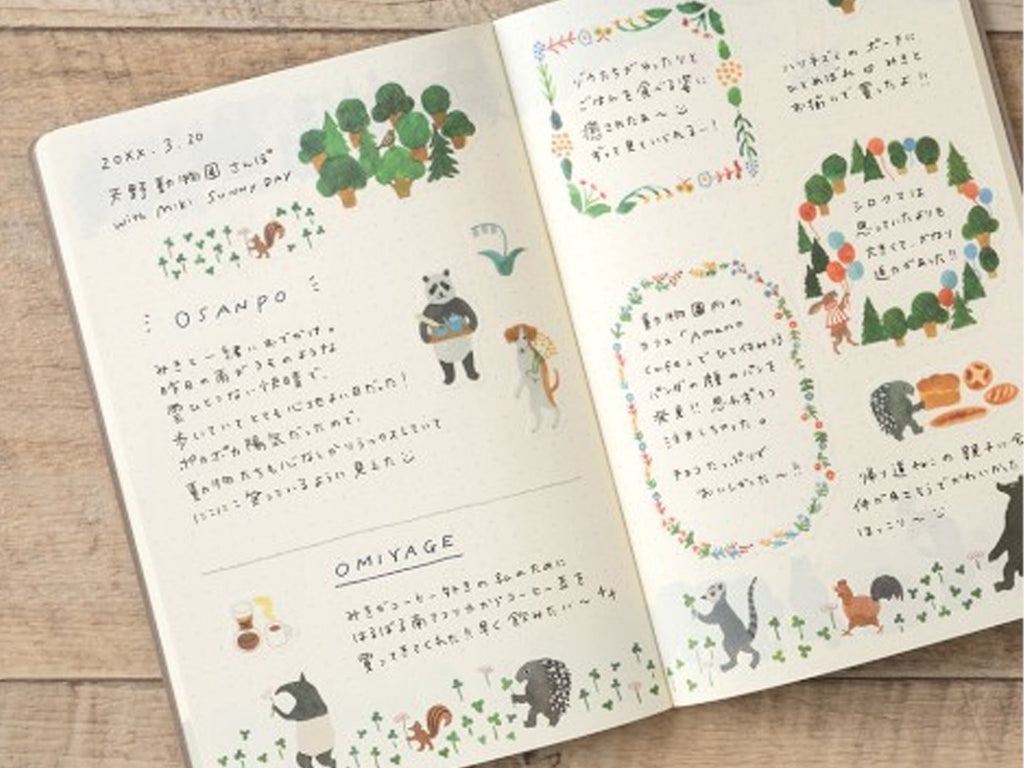 20XX.3.20
天野動物園さんぽ
with MIKI SUNNY DAY
OSANPO
みきと一緒におでかけ。
昨日の雨がうそのような
雲ひとつない快晴で、
歩いていてとても心地よい日だった!
ポカポカ陽気だったので、
動物たちも心なしかリラックスしていて
にこにこ笑っているように見えた
OMIYAGE
みきがコーヒー好きの私のために
はるばる南アフリカからコーヒー豆を
買ってきてくれた!!早く飲みたい〜
ゾウたちがゆったりと
ごはんを食べる姿に
癒されたぁ〜
ずっと見ていられる〜!
ハリネズミのポーチに
ひとめぼれ みきと
お揃いで買ったよ!!
シロクマは
思っていたよりも
大きくて、かなり
迫力があった!!
動物園内の
カフェ「Amano
cafe」でひと休み
パンダの顔のパンを
発見!! 思わず
注文しちゃった。
チョコたっぷりで
おいしかった〜!!
帰り道ねこの親子に会
仲が良さそうでかわいかった
ほっこり〜